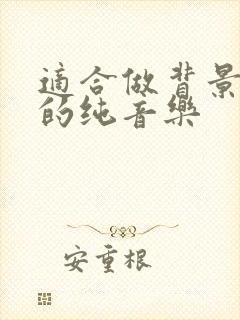 適合做背景
的纯音樂
安重根